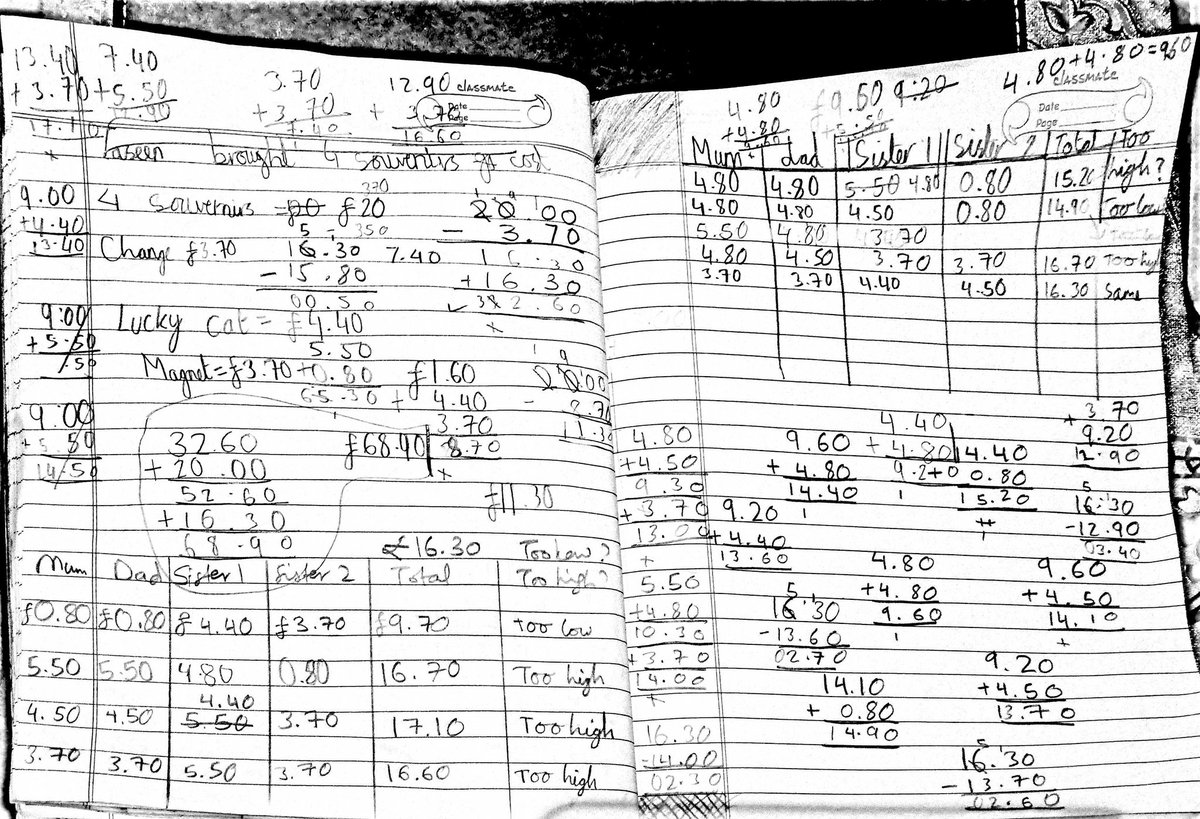 13.40 7.40
+ 3.70 + 5.50 3.70 12.90 classmate
17.10 12.90 + 3.70 + 3.70 Date
7.40 16.60 Page
brought 4 souvenirs cost
9.00 4 souvenirs = £20 20.00
+4.40 - 3.70
13.40 Change £3.70 16.30 7.40 16.30
- 15.80 + 16.30
00.50 32.60
9:00 Lucky cat = £4.40
+ 5.50 5.50
Magnet = £3.70 + 0.80 £1.60 20.00
9:00 + 4.40
32.60 £68.90 3.70 11.30
14.50 + 20.00 8.70
52.60 £11.30
+ 16.30
68.90 £16.30 Too Low?
Mum Dad Sister 1 Sister 2 Total Too high?
£0.80 £0.80 £4.40 £3.70 £9.70 too low
5.50 5.50 4.80 0.80 16.70 Too high
4.40
4.50 4.50 5.50 3.70 17.10 Too high
3.70 3.70 5.50 3.70 16.60 Too high
4.80 + 4.80 = 9.60
4.80 £9.60 9.20 classmate
+ 4.80 Date
Page
Mum dad Sister 1 Sister 2 Total Too
high?
4.80 4.80 5.50 4.80 0.80 15.20
4.80 4.80 4.50 0.80 14.90 Too low
5.50 4.80 3.70
4.80 4.50 3.70 3.70 16.70 Too high
3.70 3.70 4.40 4.50 16.30 Same
3.70
4.40 + 9.20
4.80 9.60 + 4.80 14.40 12.90
+4.50 + 4.80 9.20 0.80
9.30 14.40 15.20 16.30
+ 3.70 9.20 - 12.90
13.00 + 4.40 03.40
13.60 4.80 9.60
5.50 + 4.80 + 4.50
+4.80 16.30 9.60 14.10
10.30 - 13.60
+ 3.70 02.70 9.20
14.00 14.10 + 4.50
+ 0.80 13.70
16.30 14.90
- 14.00 16.30
02.30 - 13.70
02.60